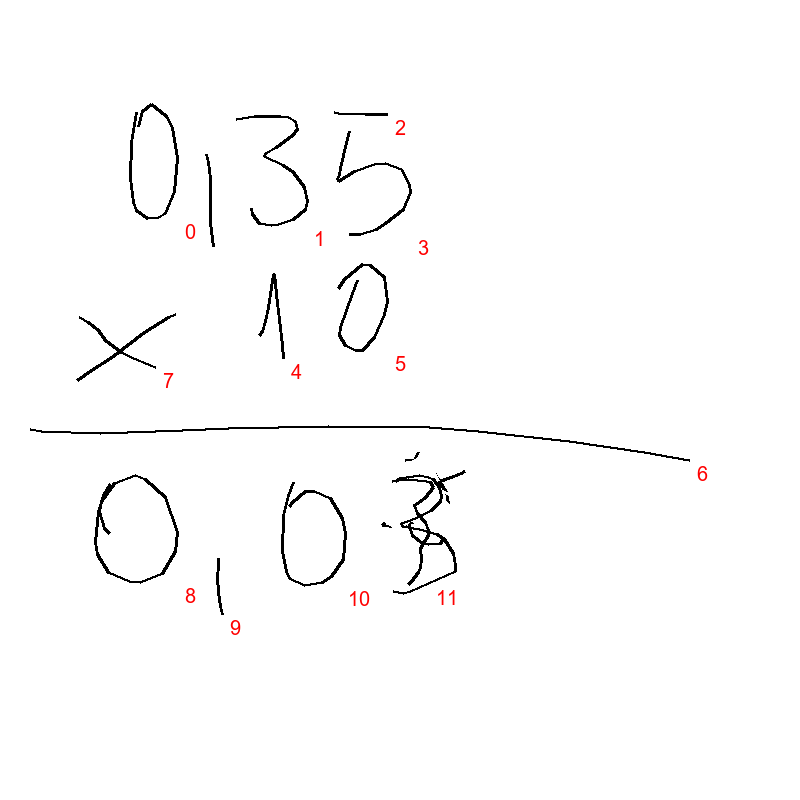 0,35
x 10
0,03
0
1
2
3
4
5
6
7
8
9
10
11